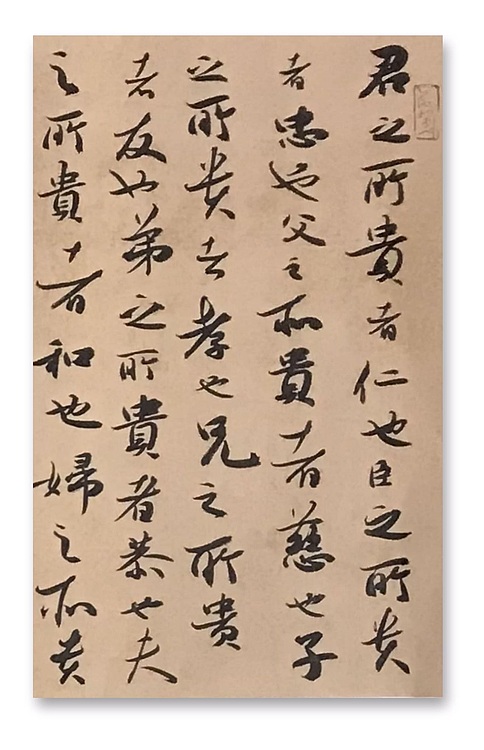 君之所貴者仁也臣之所貴
者忠也父之所貴者慈也子
之所貴者孝也兄之所貴
者友也弟之所貴者恭也夫
之所貴者和也婦之所貴